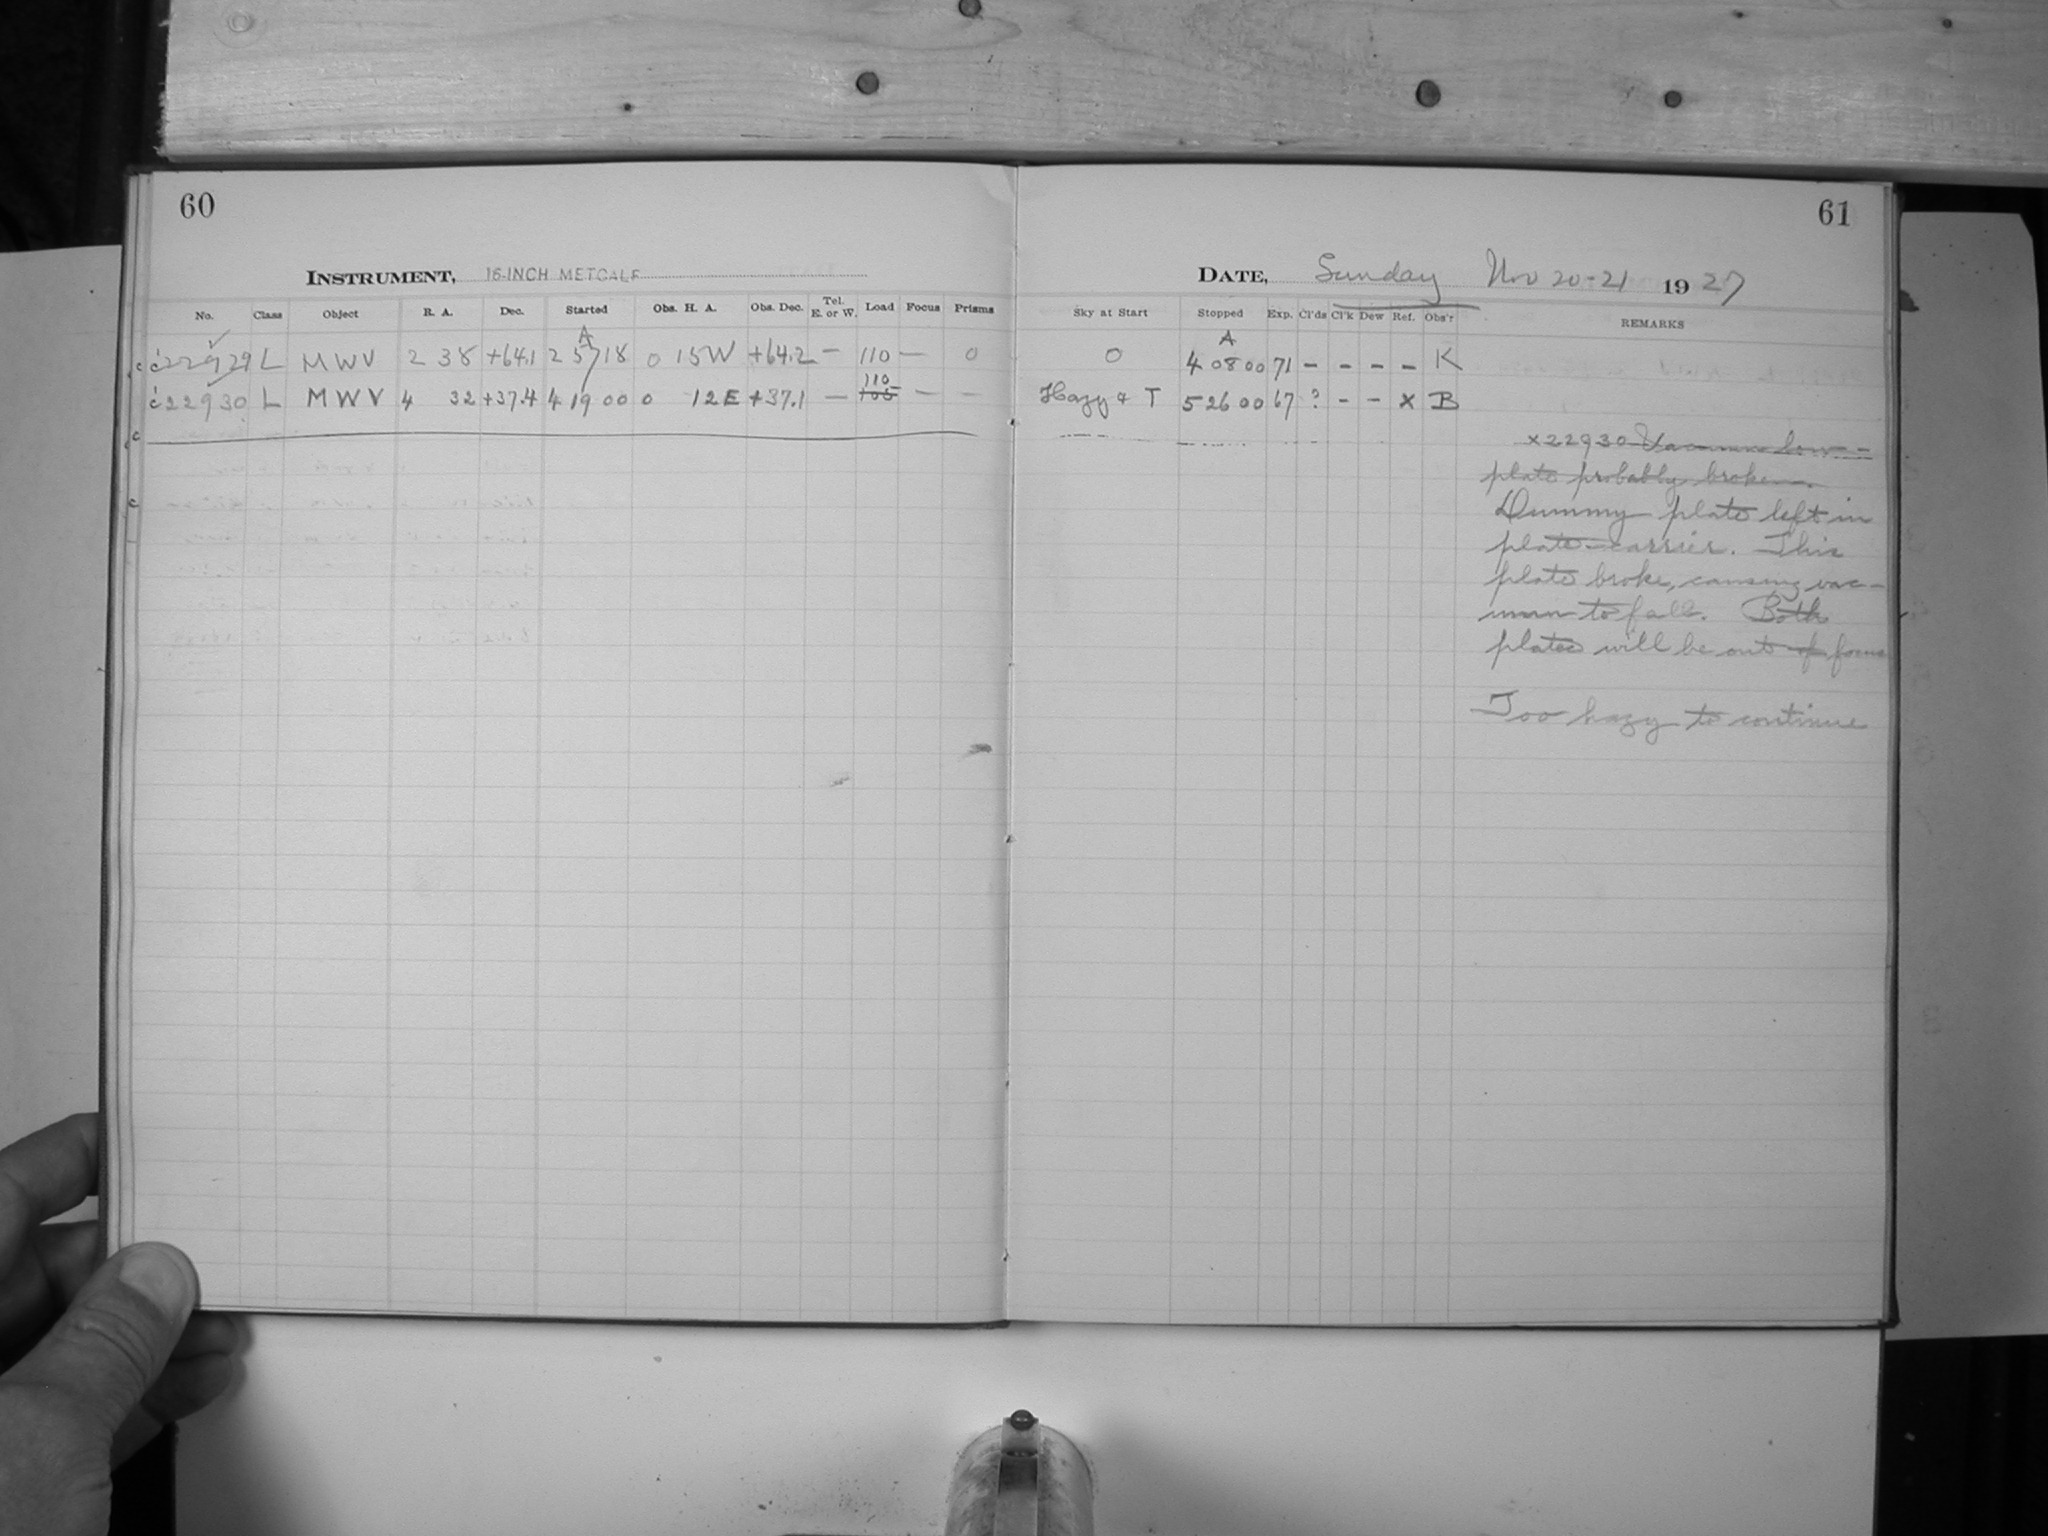 60
INSTRUMENT, 16-INCH METCALF
No. Class Object R. A. Dec. Started Obs. H. A. Obs. Dec. Tel. E. or W. Load Focus Prisms
c 22929 L MWV 2 38 +64.1 2 57 18 0 15W +64.2 — 110 — 0
c 22930 L MWV 4 32 +37.4 4 19 00 0 12E +37.1 — 110 — —
61
DATE, Sunday Nov 20-21 1927
Sky at Start Stopped Exp. Cl'ds Cl'k Dew Ref. Obs'r REMARKS
A
0 4 08 00 71 - - - - K
Hazy & T 5 26 00 67 ? - - x B
x22930 Vacuum low -
plate probably broken.
Dummy plate left in
plate-carrier. This
plate broke, causing vac-
uum to fall. Both
plates will be out of focus
Too hazy to continue